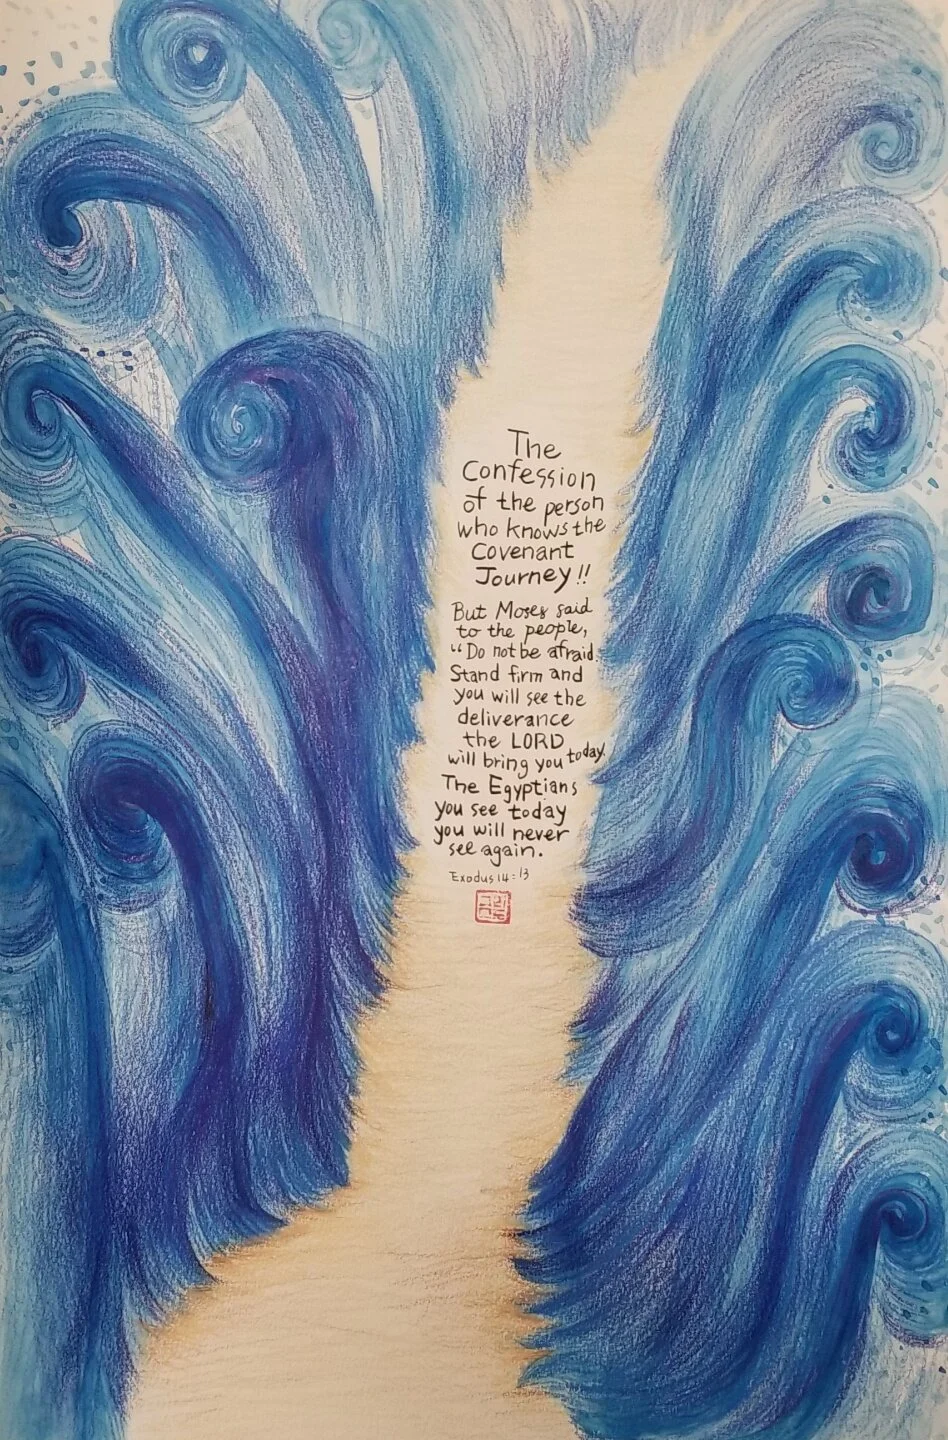 The
Confession
of the person
who knows the
Covenant
Journey!!
But Moses said
to the people,
“Do not be afraid.
Stand firm and
you will see the
deliverance
the LORD
will bring you today.
The Egyptians
you see today
you will never
see again.
Exodus 14:13